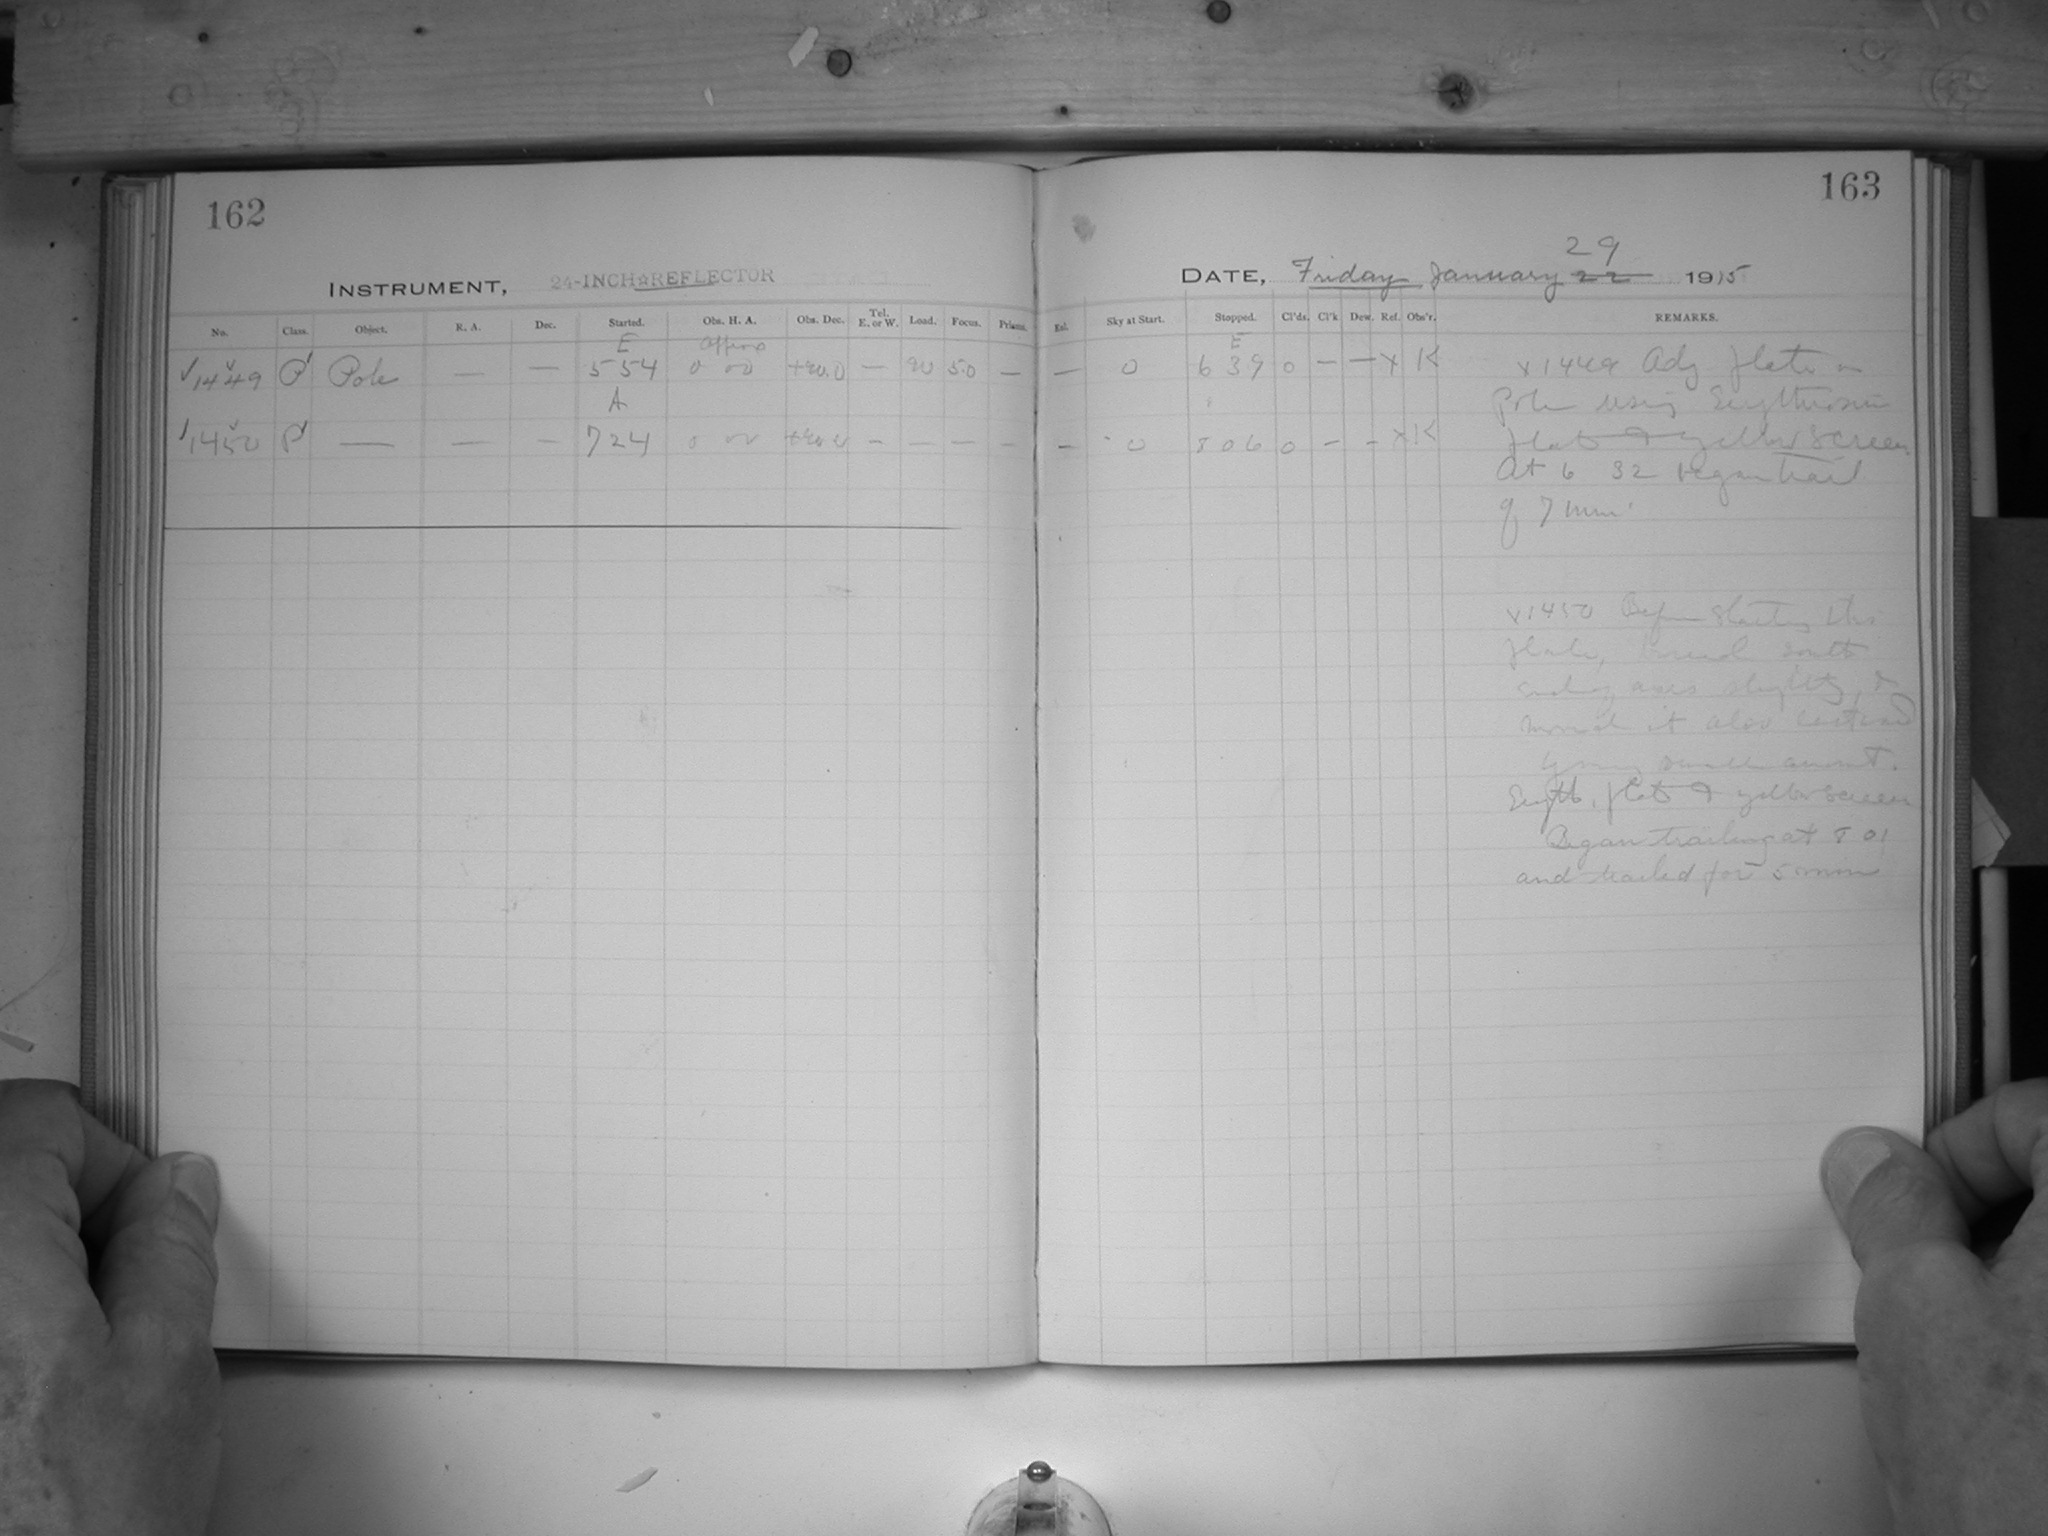 162
163
INSTRUMENT, 24-INCH REFLECTOR
DATE, Friday January 22 29 1915
No. Class. Object. R. A. Dec. Started. Obs. H. A. Obs. Dec. Tel. E. or W. Load. Focus. Prisms. Exl. Sky at Start. Stopped. Cl'ds. Cl'k. Dew. Ref. Obs'r. REMARKS.
E approx E
√1449 P' Pole — — 5 54 0 00 +90.0 — 90 5.0 — — 0 6 39 0 — — x K
A
√1450 P' — — — 7 24 0 00 +90.0 — — — — — 0 8 06 0 — — x K
x1449 Adj plate on
Pole using Erythrosin
plate & yellow screen
At 6 32 began trail
of 7 min.
x1450 Before starting this
plate, south
slightly, &
moved it also
small amount.
Eryth. plate & yellow screen
Began trailing at 8 01
and trailed for 5 min